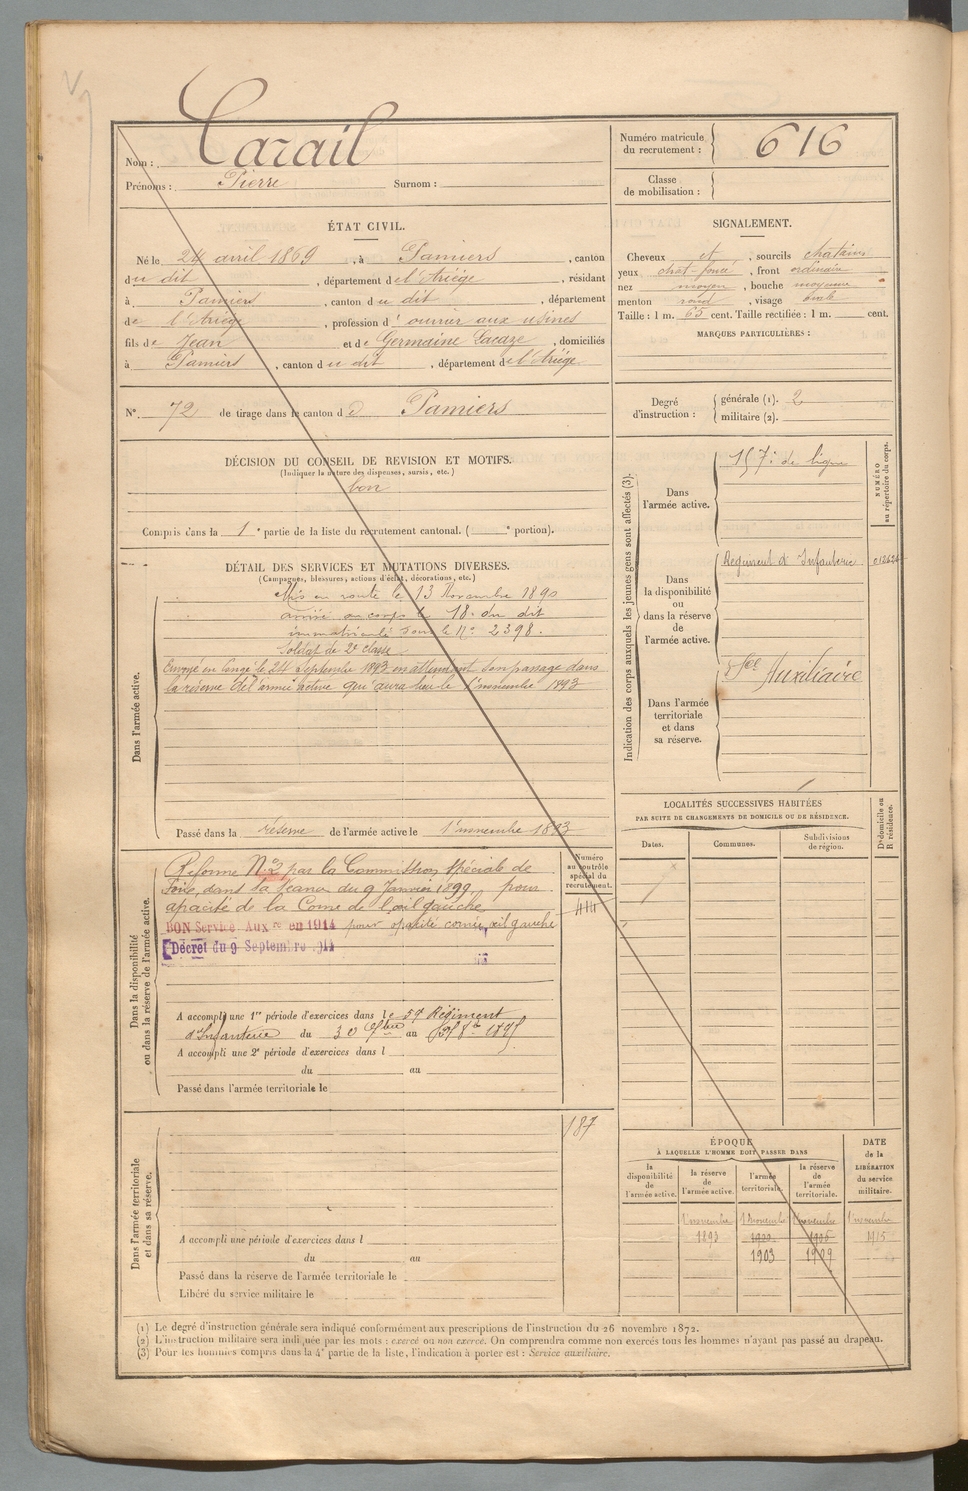 Nom : Carail
Prénoms : Pierre Surnom :
Numéro matricule du recrutement : 616
Classe de mobilisation :
ÉTAT CIVIL.
Né le 24 avril 1869, à Pamiers, canton
du dit, département de l'Ariège, résidant
à Pamiers, canton du dit, département
de l'Ariège, profession d' ouvrier aux usines
fils de Jean et de Germaine Cacaze, domiciliés
à Pamiers, canton du dit, département de l'Ariège
N° 72 de tirage dans le canton d Pamiers
SIGNALEMENT.
Cheveux et, sourcils chatains
yeux chat-foncé, front ordinaire
nez moyen, bouche moyenne
menton rond, visage ovale
Taille : 1 m. 65 cent. Taille rectifiée : 1 m. cent.
MARQUES PARTICULIÈRES :
Degré d'instruction : générale (1). 2
militaire (2).
DÉCISION DU CONSEIL DE REVISION ET MOTIFS.
(Indiquer la nature des dispenses, sursis, etc.)
bon
Compris dans la 1e partie de la liste du recrutement cantonal. ( e portion).
DÉTAIL DES SERVICES ET MUTATIONS DIVERSES.
(Campagnes, blessures, actions d'éclat, décorations, etc.)
Dans l'armée active.
Mis en route le 13 Novembre 1890
arrivé au corps le 18 du dit
immatriculé sous le N° 2398.
Soldat de 2e classe
Envoyé en congé le 24 Septembre 1893 en attendant son passage dans
la réserve de l'armée active qui aura lieu le 1er novembre 1893
Passé dans la réserve de l'armée active le 1er novembre 1893
Dans la disponibilité ou dans la réserve de l'armée active.
Numéro au contrôle spécial du recrutement.
Réforme N° 2 par la Commission spéciale de
Foix, dans sa séance du 9 Janvier 1899, pour
opacité de la Corne de l'œil gauche
BON Service Auxre en 1914 pour opacité cornée œil gauche
Décret du 9 Septembre 1914
A accompli une 1re période d'exercices dans le 59 Régiment
d'Infanterie du 30 7bre au
A accompli une 2e période d'exercices dans l
du au
Passé dans l'armée territoriale le
187
Dans l'armée territoriale et dans sa réserve.
A accompli une période d'exercices dans l
du au
Passé dans la réserve de l'armée territoriale le
Libéré du service militaire le
Indication des corps auxquels les jeunes gens sont affectés (3).
NUMÉRO au répertoire du corps.
Dans l'armée active. 157e de ligne
Dans la disponibilité ou dans la réserve de l'armée active. Régiment d'Infanterie
Dans l'armée territoriale et dans sa réserve. Sce Auxiliaire
LOCALITÉS SUCCESSIVES HABITÉES
PAR SUITE DE CHANGEMENTS DE DOMICILE OU DE RÉSIDENCE.
Dates. Communes. Subdivisions de région. D domicile ou R résidence.
ÉPOQUE
À LAQUELLE L'HOMME DOIT PASSER DANS
la disponibilité de l'armée active. la réserve de l'armée active. l'armée territoriale. la réserve de l'armée territoriale.
DATE de la LIBÉRATION du service militaire.
1er novembre 1er novembre 1er novembre 1er novembre
1893 1900 1906 1915
1903 1909
(1) Le degré d'instruction générale sera indiqué conformément aux prescriptions de l'instruction du 26 novembre 1872.
(2) L'instruction militaire sera indiquée par les mots : exercé ou non exercé. On comprendra comme non exercés tous les hommes n'ayant pas passé au drapeau.
(3) Pour les hommes compris dans la 4e partie de la liste, l'indication à porter est : Service auxiliaire.